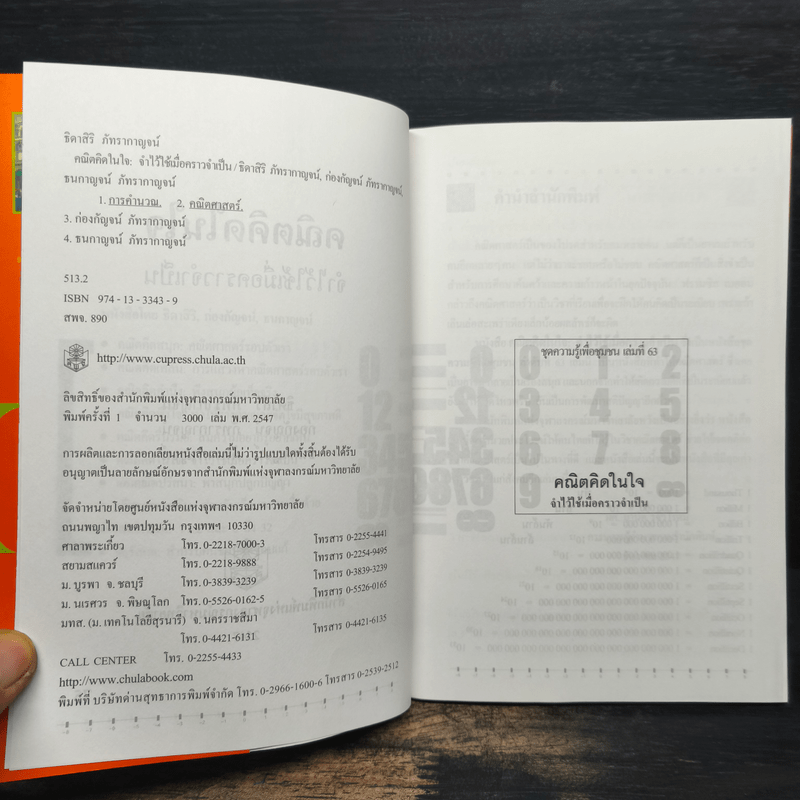 ธิดาสิริ ภัทรากาญจน์
คณิตคิดในใจ: จำไว้ใช้เมื่อคราวจำเป็น / ธิดาสิริ ภัทรากาญจน์, ก่องกัญจน์ ภัทรากาญจน์,
ธนกาญจน์ ภัทรากาญจน์
1. การคำนวณ. 2. คณิตศาสตร์.
3. ก่องกัญจน์ ภัทรากาญจน์
4. ธนกาญจน์ ภัทรากาญจน์
513.2
ISBN 974 - 13 - 3343 - 9
สพจ. 890
http://www.cupress.chula.ac.th
ลิขสิทธิ์ของสำนักพิมพ์แห่งจุฬาลงกรณ์มหาวิทยาลัย
พิมพ์ครั้งที่ 1 จำนวน 3000 เล่ม พ.ศ. 2547
การผลิตและการลอกเลียนหนังสือเล่มนี้ไม่ว่ารูปแบบใดทั้งสิ้นต้องได้รับ
อนุญาตเป็นลายลักษณ์อักษรจากสำนักพิมพ์แห่งจุฬาลงกรณ์มหาวิทยาลัย
จัดจำหน่ายโดยศูนย์หนังสือแห่งจุฬาลงกรณ์มหาวิทยาลัย
ถนนพญาไท เขตปทุมวัน กรุงเทพฯ 10330
ศาลาพระเกี้ยว โทร. 0-2218-7000-3 โทรสาร 0-2255-4441
สยามสแควร์ โทร. 0-2218-9888 โทรสาร 0-2254-9495
ม. บูรพา จ. ชลบุรี โทร. 0-3839-3239 โทรสาร 0-3839-3239
ม. นเรศวร จ. พิษณุโลก โทร. 0-5526-0162-5 โทรสาร 0-5526-0165
มทส. (ม. เทคโนโลยีสุรนารี) จ. นครราชสีมา
โทร. 0-4421-6131 โทรสาร 0-4421-6135
CALL CENTER โทร. 0-2255-4433
http://www.chulabook.com
พิมพ์ที่ บริษัทด่านสุทธาการพิมพ์จำกัด โทร. 0-2966-1600-6 โทรสาร 0-2539-2512
ชุดความรู้เพื่อชุมชน เล่มที่ 63
0 1 2
3 4 5
6 7 8
9 ∞
คณิตคิดในใจ
จำไว้ใช้เมื่อคราวจำเป็น